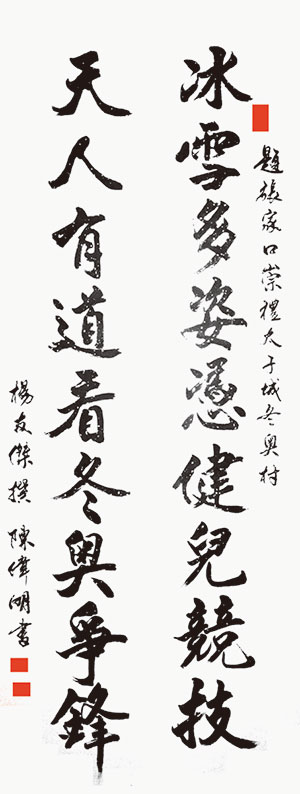 題張家口崇禮太子城冬奧村
冰雪多姿憑健兒競技
天人有道看冬奧爭鋒
楊友傑撰 陳偉明書